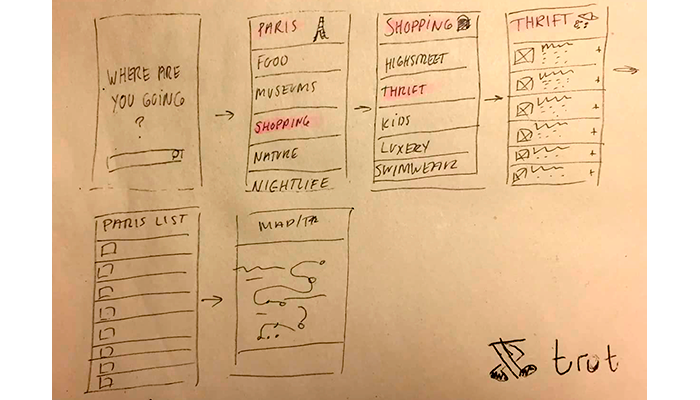 WHERE ARE
YOU GOING
?
PARIS
FOOD
MUSEUMS
SHOPPING
NATURE
NIGHTLIFE
SHOPPING
HIGHSTREET
THRIFT
KIDS
LUXERY
SWIMWEAR
THRIFT
+
+
+
+
+
+
PARIS LIST
trut